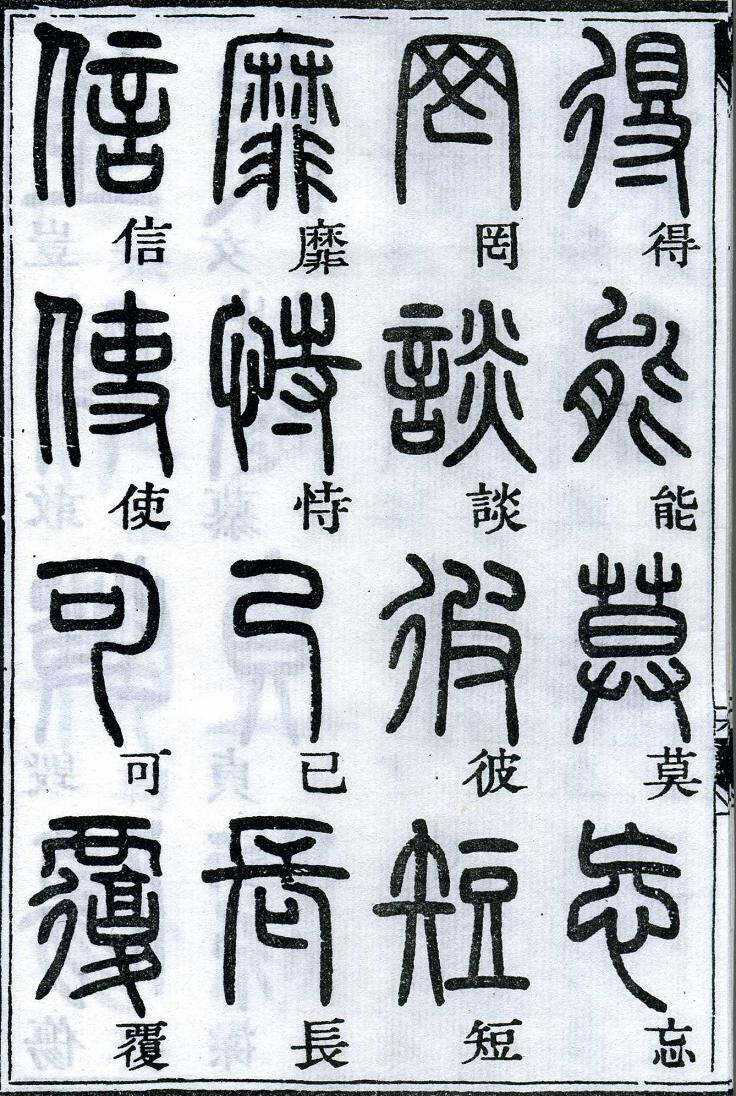 得能莫忘
罔談彼短
靡恃已長
信使可覆